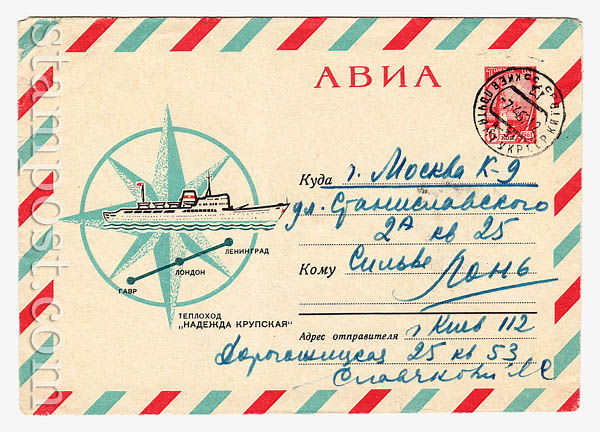 АВИА
Куда г. Москва К-9
ул. Станиславского
2А кв 25
Кому Сильве
Лонь
ЛЕНИНГРАД
ЛОНДОН
ГАВР
ТЕПЛОХОД
„НАДЕЖДА КРУПСКАЯ“
Адрес отправителя г Киев 112
Дорогожицкая 25 кв 53
stampost.com